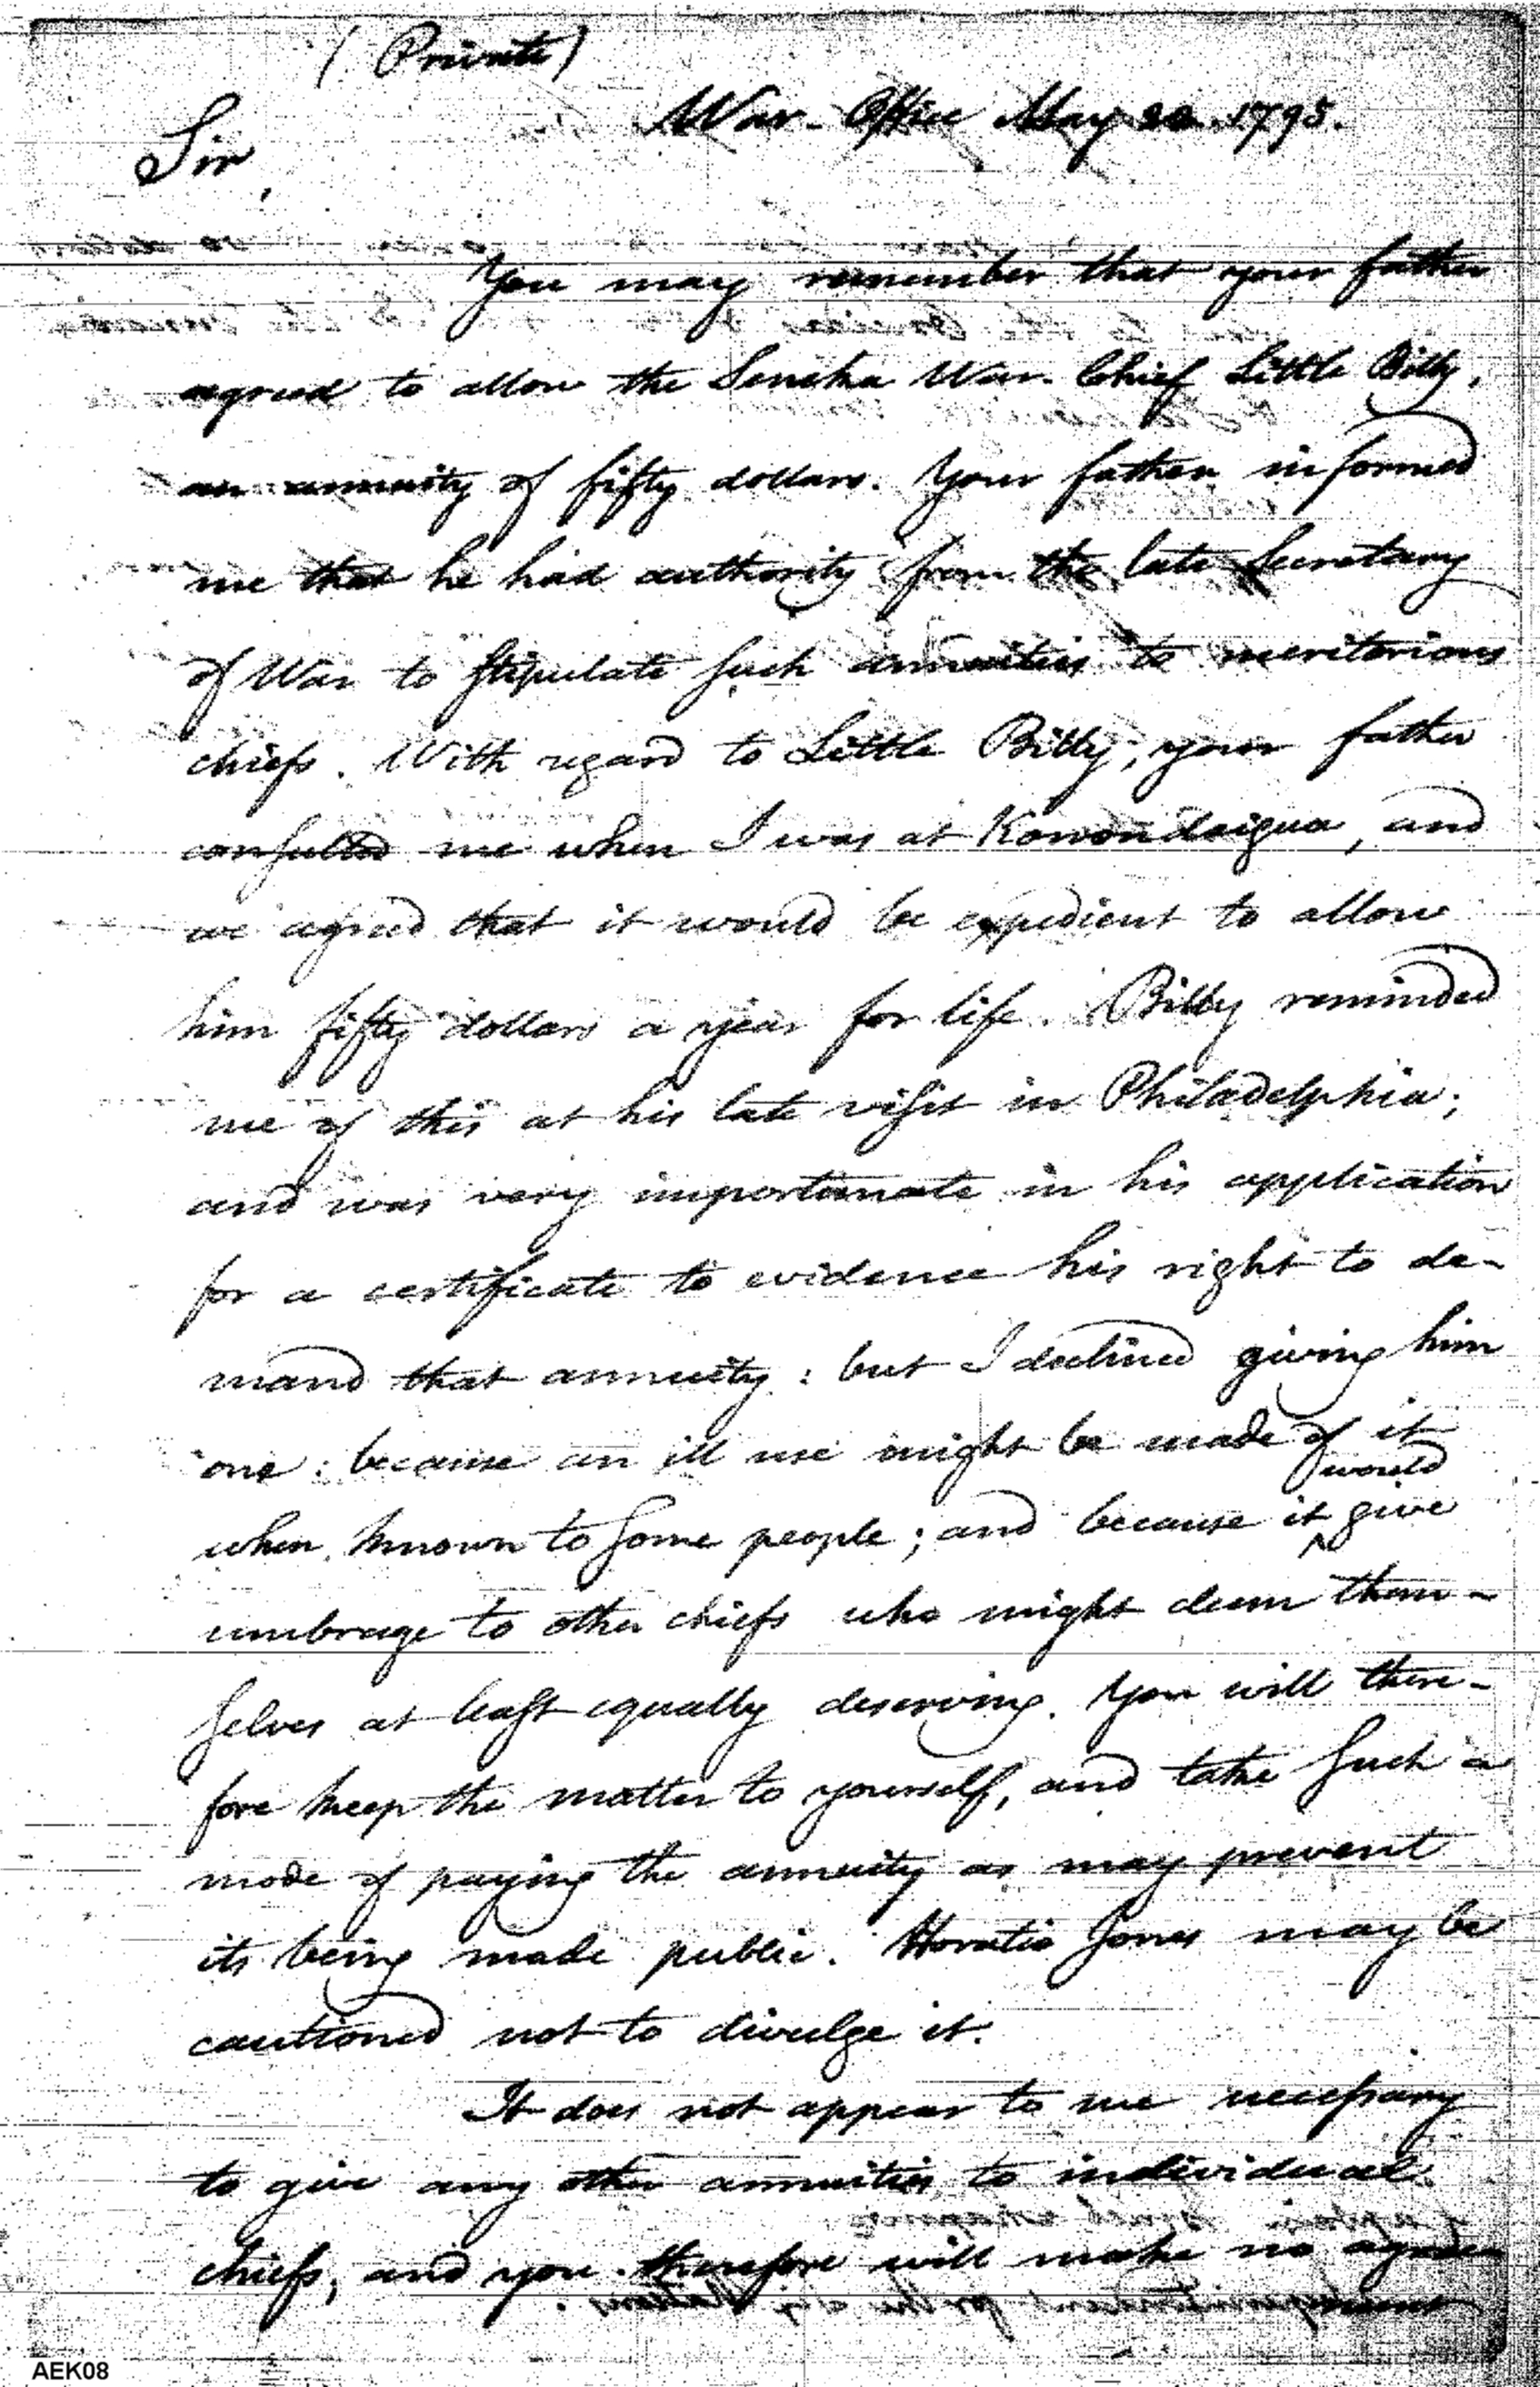 (Private)
War-Office May 22. 1795.
Sir,
You may remember that your father
agreed to allow the Seneka War-Chief Little Billy,
an annuity of fifty dollars. Your father informed
me that he had authority from the late Secretary
of War to stipulate such annuities to meritorious
chiefs. With regard to Little Billy, your father
consulted me when I was at Konondaigua, and
we agreed that it would be expedient to allow
him fifty dollars a year for life. Billy reminded
me of this at his late visit in Philadelphia;
and was very importunate in his application
for a certificate to evidence his right to de-
mand that annuity: but I declined giving him
one: because an ill use might be made of it
would
when known to some people; and because it ^ give
umbrage to other chiefs who might deem them-
selves at least equally deserving. You will there-
fore keep the matter to yourself, and take such a
mode of paying the annuity as may prevent
its being made public. Horatio Jones may be
cautioned not to divulge it.
It does not appear to me necessary
to give any other annuities to individual
chiefs, and you therefore will make no agree-
ment
AEK08